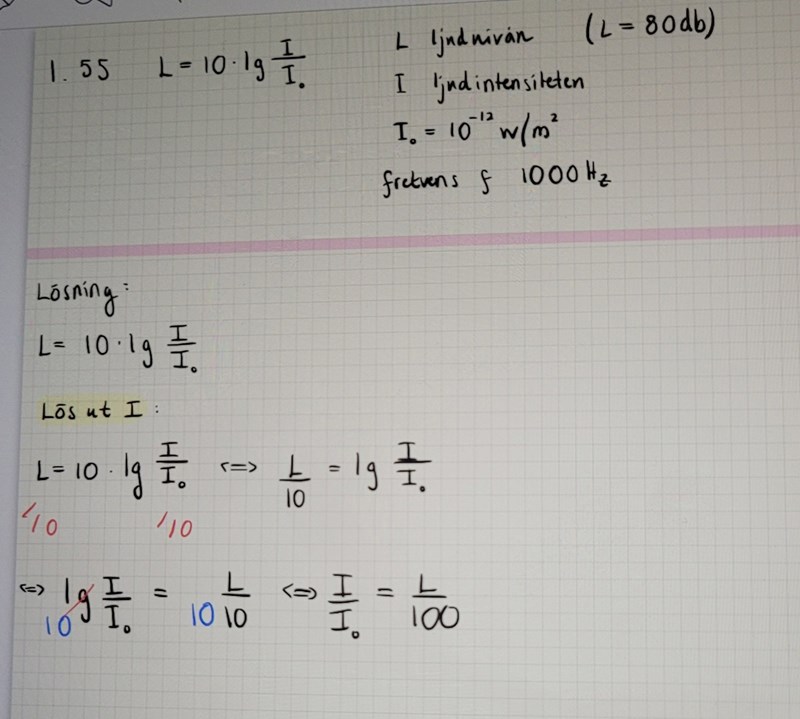 1.55 L = 10 · lg I/I₀
L ljudnivån (L = 80db)
I ljudintensiteten
I₀ = 10⁻¹² w/m²
frekvens f 1000 Hz
Lösning:
L = 10 · lg I/I₀
Lös ut I :
L = 10 · lg I/I₀ <=> L/10 = lg I/I₀
/10 /10
<=> 10 lg I/I₀ = 10 L/10 <=> I/I₀ = L/100